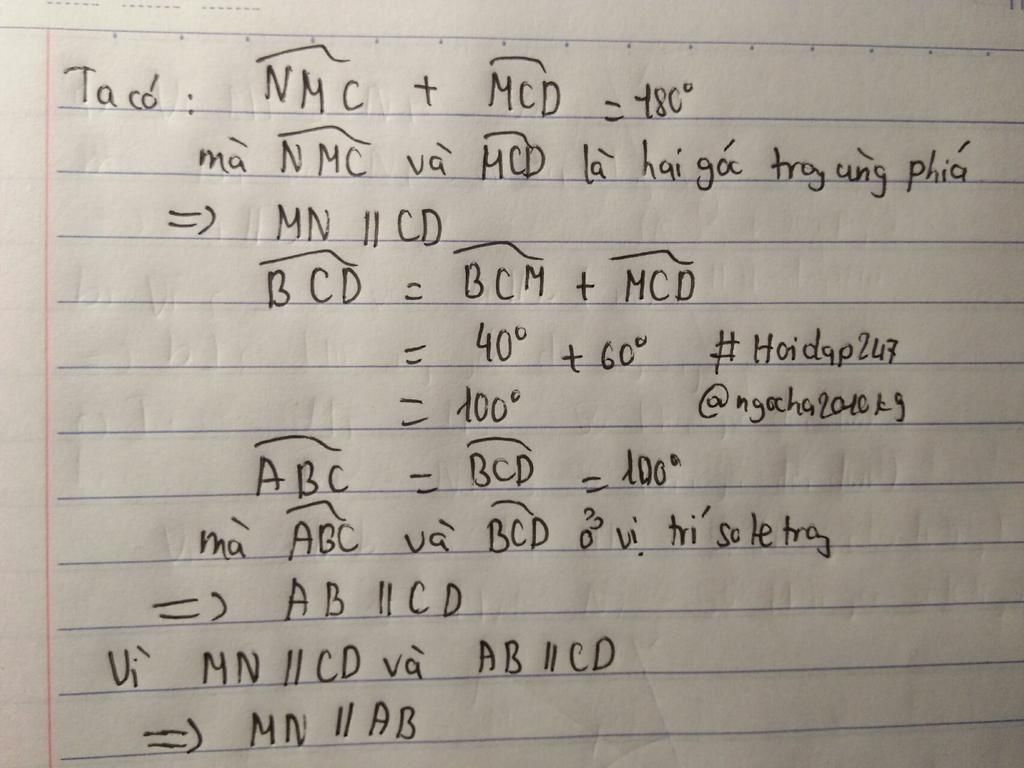 Ta có : NMC + MCD = 180°
mà NMC và MCD là hai góc trog cùng phiá
=> MN // CD
BCD = BCM + MCD
= 40° + 60° # Hoidap247
= 100° @ngocha2010kg
ABC = BCD = 100°
mà ABC và BCD ở vị trí so le trog
=> AB // CD
Vì MN // CD và AB // CD
=> MN // AB